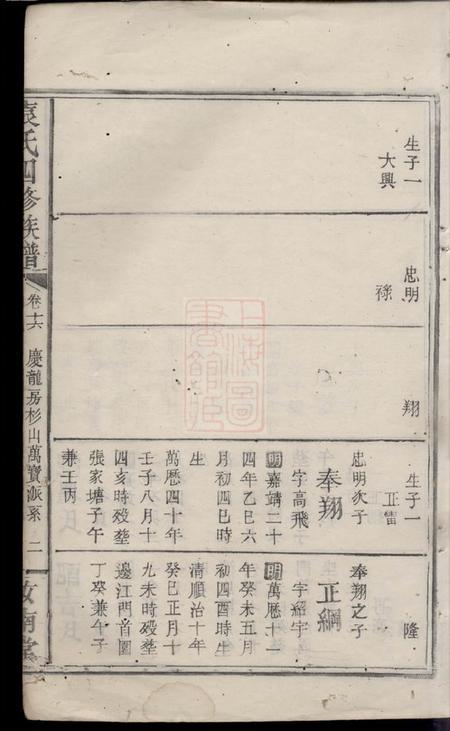 生子一
大興
忠明
祿
翔
生子一
正
隆
忠明次子
奉翔
字高飛
明嘉靖二十
四年乙巳六
月初四巳時
生
萬歷四十年
壬子八月十
四亥時殁塟
張家塘子午
兼壬丙
奉翔之子
正綱
字耀宇
明萬歷十一
年癸未五月
初四酉時生
清順治十年
癸巳正月十
九未時殁塟
邊江門首園
丁癸兼午子
袁氏四修族譜
卷十六
慶龍房杉山萬寶派系
二
汝南堂
上海圖書館藏